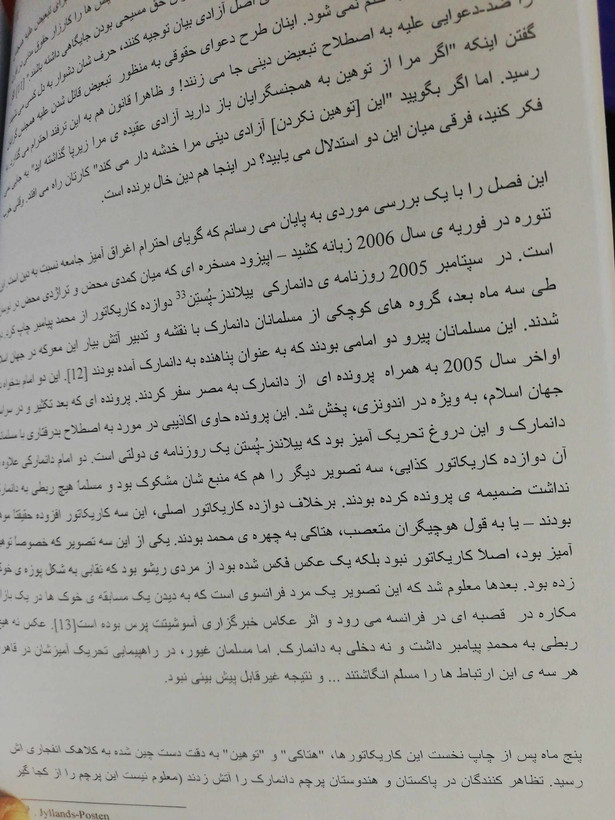 اصل آزادی بیان توجیه کنند، حرف شان دشوار به دل کسی می
را ضد-دعوایی علیه به اصطلاح تبعیض دینی جا می زنند! و ظاهرا قانون هم به این ترفند احترام می
گفتن اینکه "اگر مرا از توهین به همجنسگرایان باز دارید آزادی عقیده ی مرا زیرپا گذاشته اید" به جایی
رسید. اما اگر بگویید "این [توهین نکردن] آزادی دینی مرا خدشه دار می کند" کارتان راه می افتد. وقتی
فکر کنید، فرقی میان این دو استدلال می یابید؟ در اینجا هم دین خال برنده است.
این فصل را با یک بررسی موردی به پایان می رسانم که گویای احترام اغراق آمیز جامعه نسبت به دین است.
تنوره در فوریه ی سال 2006 زبانه کشید – اپیزود مسخره ای که میان کمدی محض و تراژدی محض در
است. در سپتامبر 2005 روزنامه ی دانمارکی ییلاندز-پُستِن33 دوازده کاریکاتور از محمد پیامبر چاپ کرد.
طی سه ماه بعد، گروه های کوچکی از مسلمانان دانمارک با نقشه و تدبیر آتش بیار این معرکه در جهان
شدند. این مسلمانان پیرو دو امامی بودند که به عنوان پناهنده به دانمارک آمده بودند [12]. این دو امام
اواخر سال 2005 به همراه پرونده ای از دانمارک به مصر سفر کردند. پرونده ای که بعد تکثیر و در
جهان اسلام، به ویژه در اندونزی، پخش شد. این پرونده حاوی اکاذیبی در مورد به اصطلاح بدرفتاری با
دانمارک و این دروغ تحریک آمیز بود که ییلاندز-پُستن یک روزنامه ی دولتی است. دو امام دانمارکی علاوه
آن دوازده کاریکاتور کذایی، سه تصویر دیگر را هم که منبع شان مشکوک بود و مسلماً هیچ ربطی به
نداشت ضمیمه ی پرونده کرده بودند. برخلاف دوازده کاریکاتور اصلی، این سه کاریکاتور افزوده حقیقتا
بودند – یا به قول هوچیگران متعصب، هتاکی به چهره ی محمد بودند. یکی از این سه تصویر که خصوصا
آمیز بود، اصلا کاریکاتور نبود بلکه یک عکس فکس شده بود از مردی ریشو بود که نقابی به شکل پوزه ی
زده بود. بعدها معلوم شد که این تصویر یک مرد فرانسوی است که به دیدن یک مسابقه ی خوک ها در یک
مکاره در قصبه ای در فرانسه می رود و اثر عکاس خبرگزاری آسوشیتت پرس بوده است[13]. عکس نه
ربطی به محمد پیامبر داشت و نه دخلی به دانمارک. اما مسلمان غیور، در راهپیمایی تحریک آمیزشان در
هر سه ی این ارتباط ها را مسلم انگاشتند ... و نتیجه غیرقابل پیش بینی نبود.
پنج ماه پس از چاپ نخست این کاریکاتورها، "هتاکی" و "توهین" به دقت دست چین شده به کلاهک انفجاری اش
رسید. تظاهر کنندگان در پاکستان و هندوستان پرچم دانمارک را آتش زدند (معلوم نیست این پرچم را از کجا گیر
Jyllands-Posten